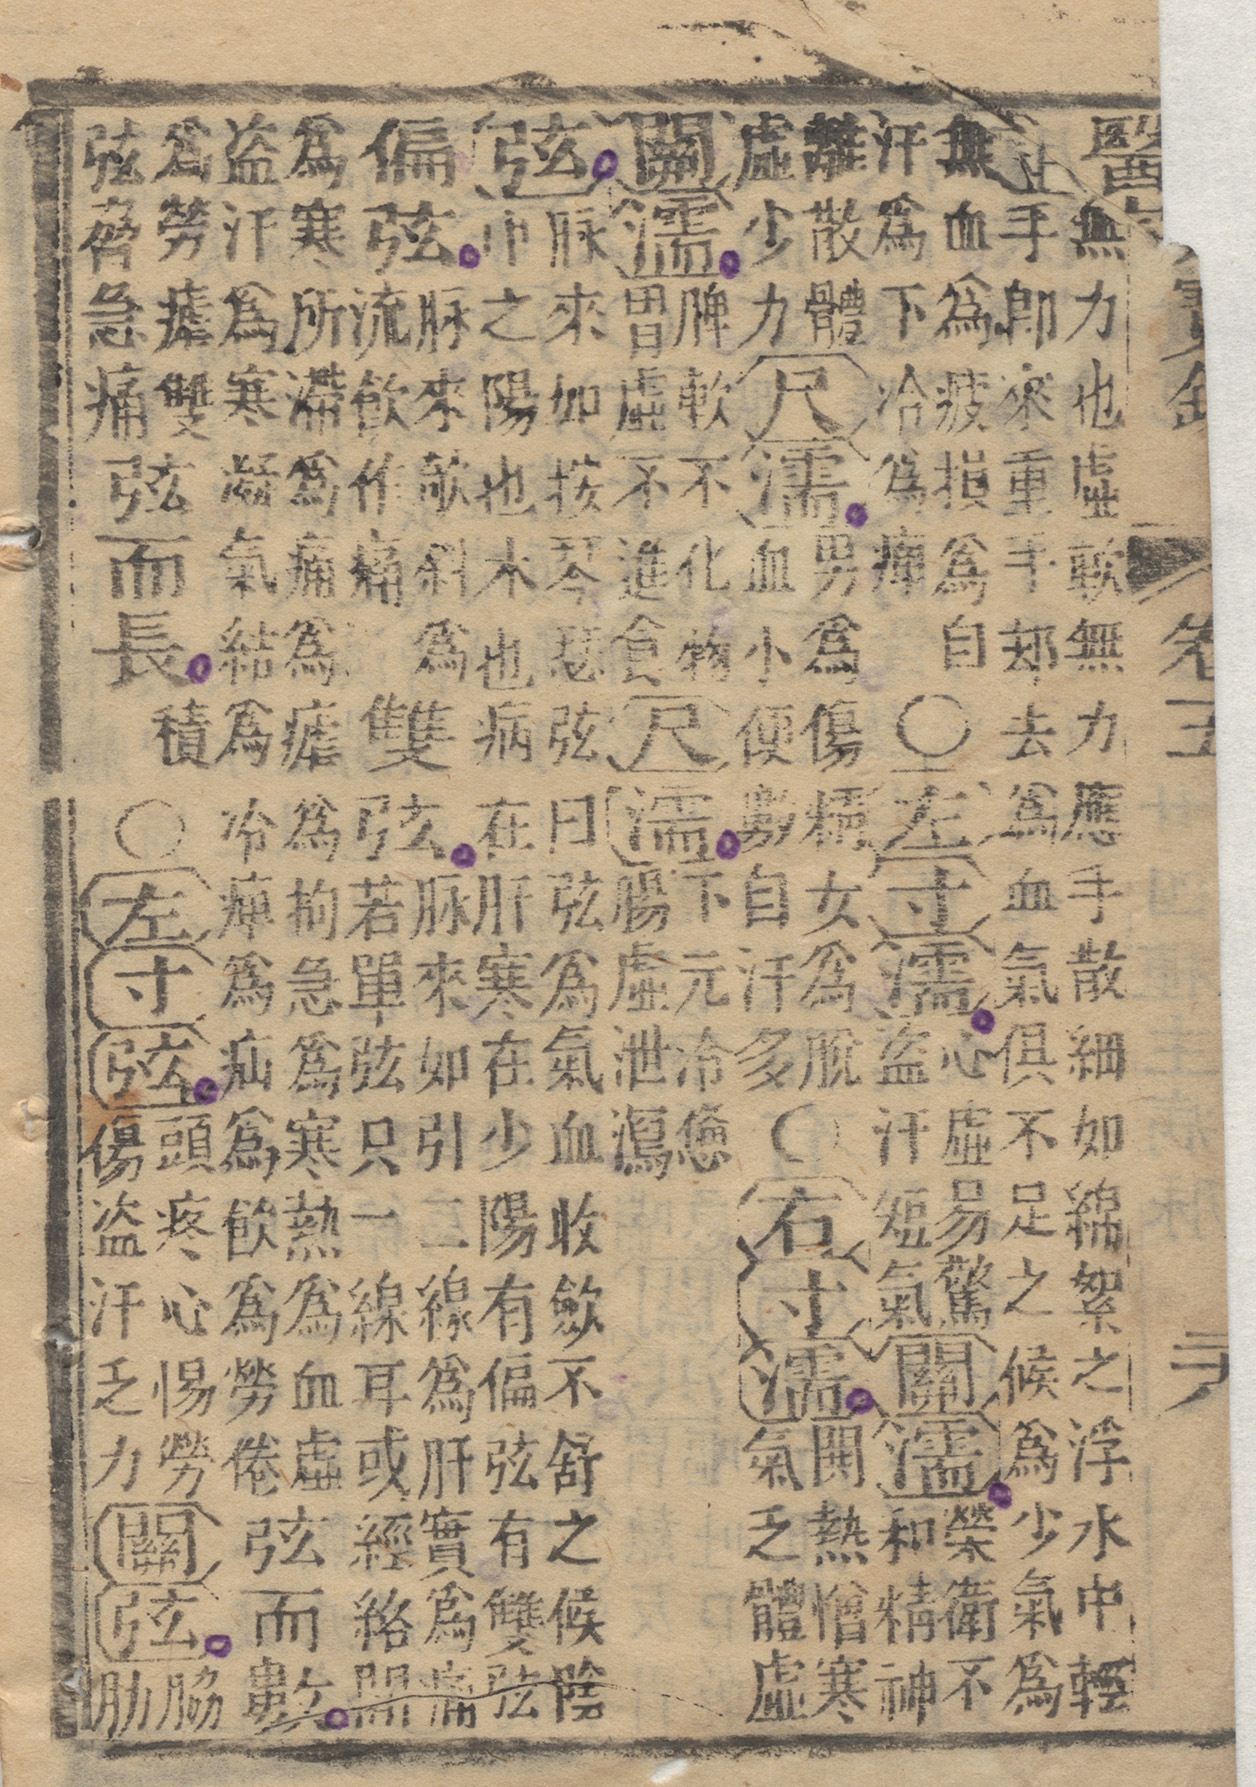 醫
卷五
無力也虛軟無力應手散細如綿絮之浮水中輕
手即來重手却去爲血氣俱不足之候爲少氣爲
無血爲疲損爲自
汗爲下冷爲痺
○左寸濡
心虛易驚
盜汗短氣
關濡
榮衛不
和精神
離散體
虛少力
尺濡
男爲傷精女爲脫
血小便數自汗多
○右寸濡
関熱憎寒
氣乏體虛
關濡
脾軟不化物
胃虛不進食
尺濡
下元冷憊
腸虛泄瀉
弦
脉來如按琴瑟弦曰弦爲氣血收斂不舒之候陰
中之陽也木也病在肝寒在少陽有偏弦有雙弦
偏弦
脉來欹斜爲
流飲作痛
雙弦
脉來如引二線爲肝實爲痛
若單弦只一線耳或經絡間
爲寒所滯爲痛爲瘧爲拘急爲寒熱爲血虛
盜汗爲寒凝氣結爲冷痺爲疝爲飲爲勞倦
弦而數
爲勞瘧雙
弦脅急痛
弦而長
積
○左寸弦
頭疼心惕勞
傷盜汗乏力
關弦
脇
肋